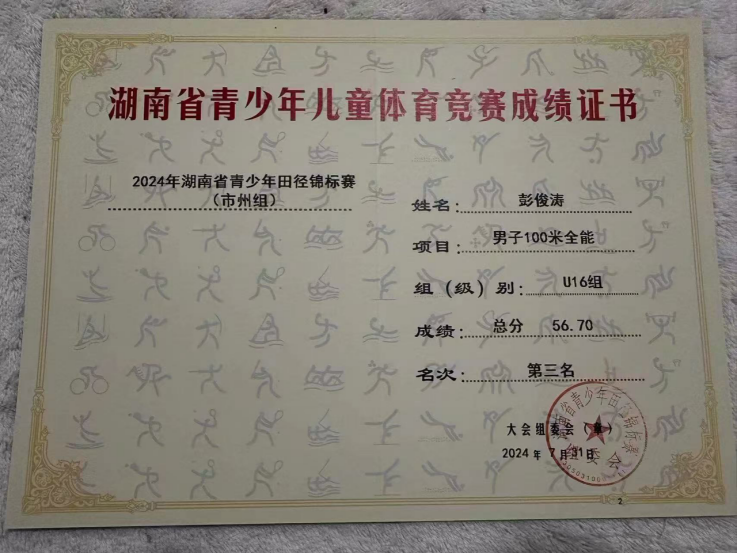 湖南省青少年儿童体育竞赛成绩证书
2024年湖南省青少年田径锦标赛
（市州组）
姓名：彭俊涛
项目：男子100米全能
组（级）别：U16组
成绩：总分 56.70
名次：第三名
大会组委会（章）
2024年7月31日
2